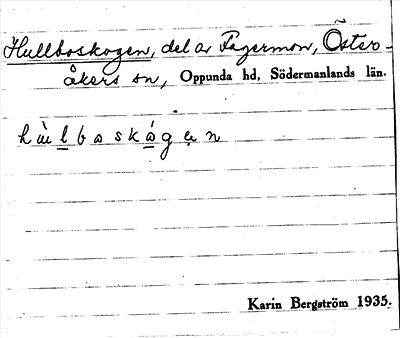 Hullboskogen, del av Fagermon, Öster-
åkers sn, Oppunda hd, Södermanlands län.
hùlboskógen
Karin Bergström 1935.